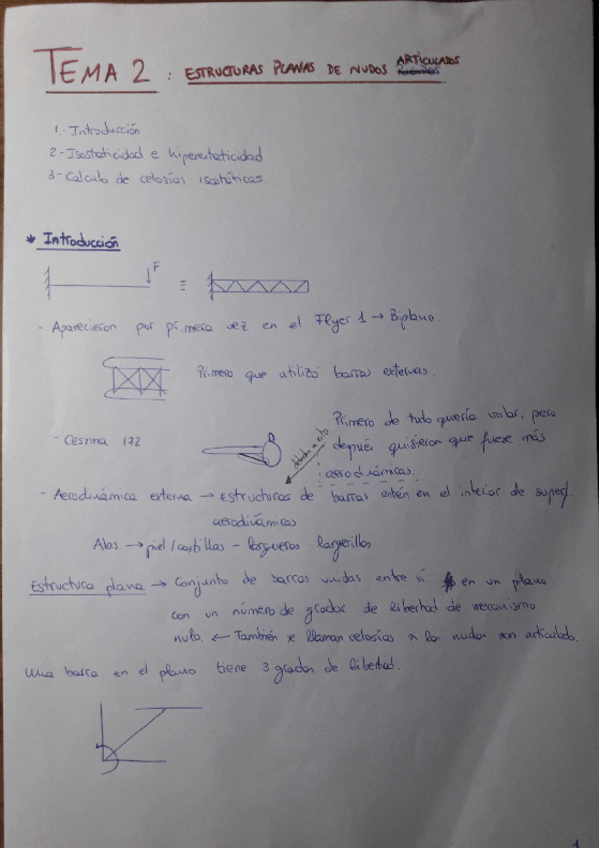 TEMA 2 : ESTRUCTURAS PLANAS DE NUDOS ARTICULADOS
1.- Introducción
2-Isostaticidad e hiperestaticidad
3-Calculo de celosías isostáticas.
* Introducción
F
≡
- Aparecieron por primera vez en el Flyer 1 → Biplano
Primero que utilizó barras externas.
- Cessna 172
Primero de todo quería volar, pero
después quisieron que fuese más
aerodinámicas.
debido a esto
- Aerodinámica externa → Estructuras de barras estén en el interior de superf.
aerodinámicas
Alas → piel/costillas - largueros - largerillos
Estructura plana → Conjunto de barras unidas entre sí en un plano
con un número de grados de libertad de mecanismo
nulo. ← También se llaman celosías si los nudos son articulado.
Una barra en el plano tiene 3 grados de libertad.
1